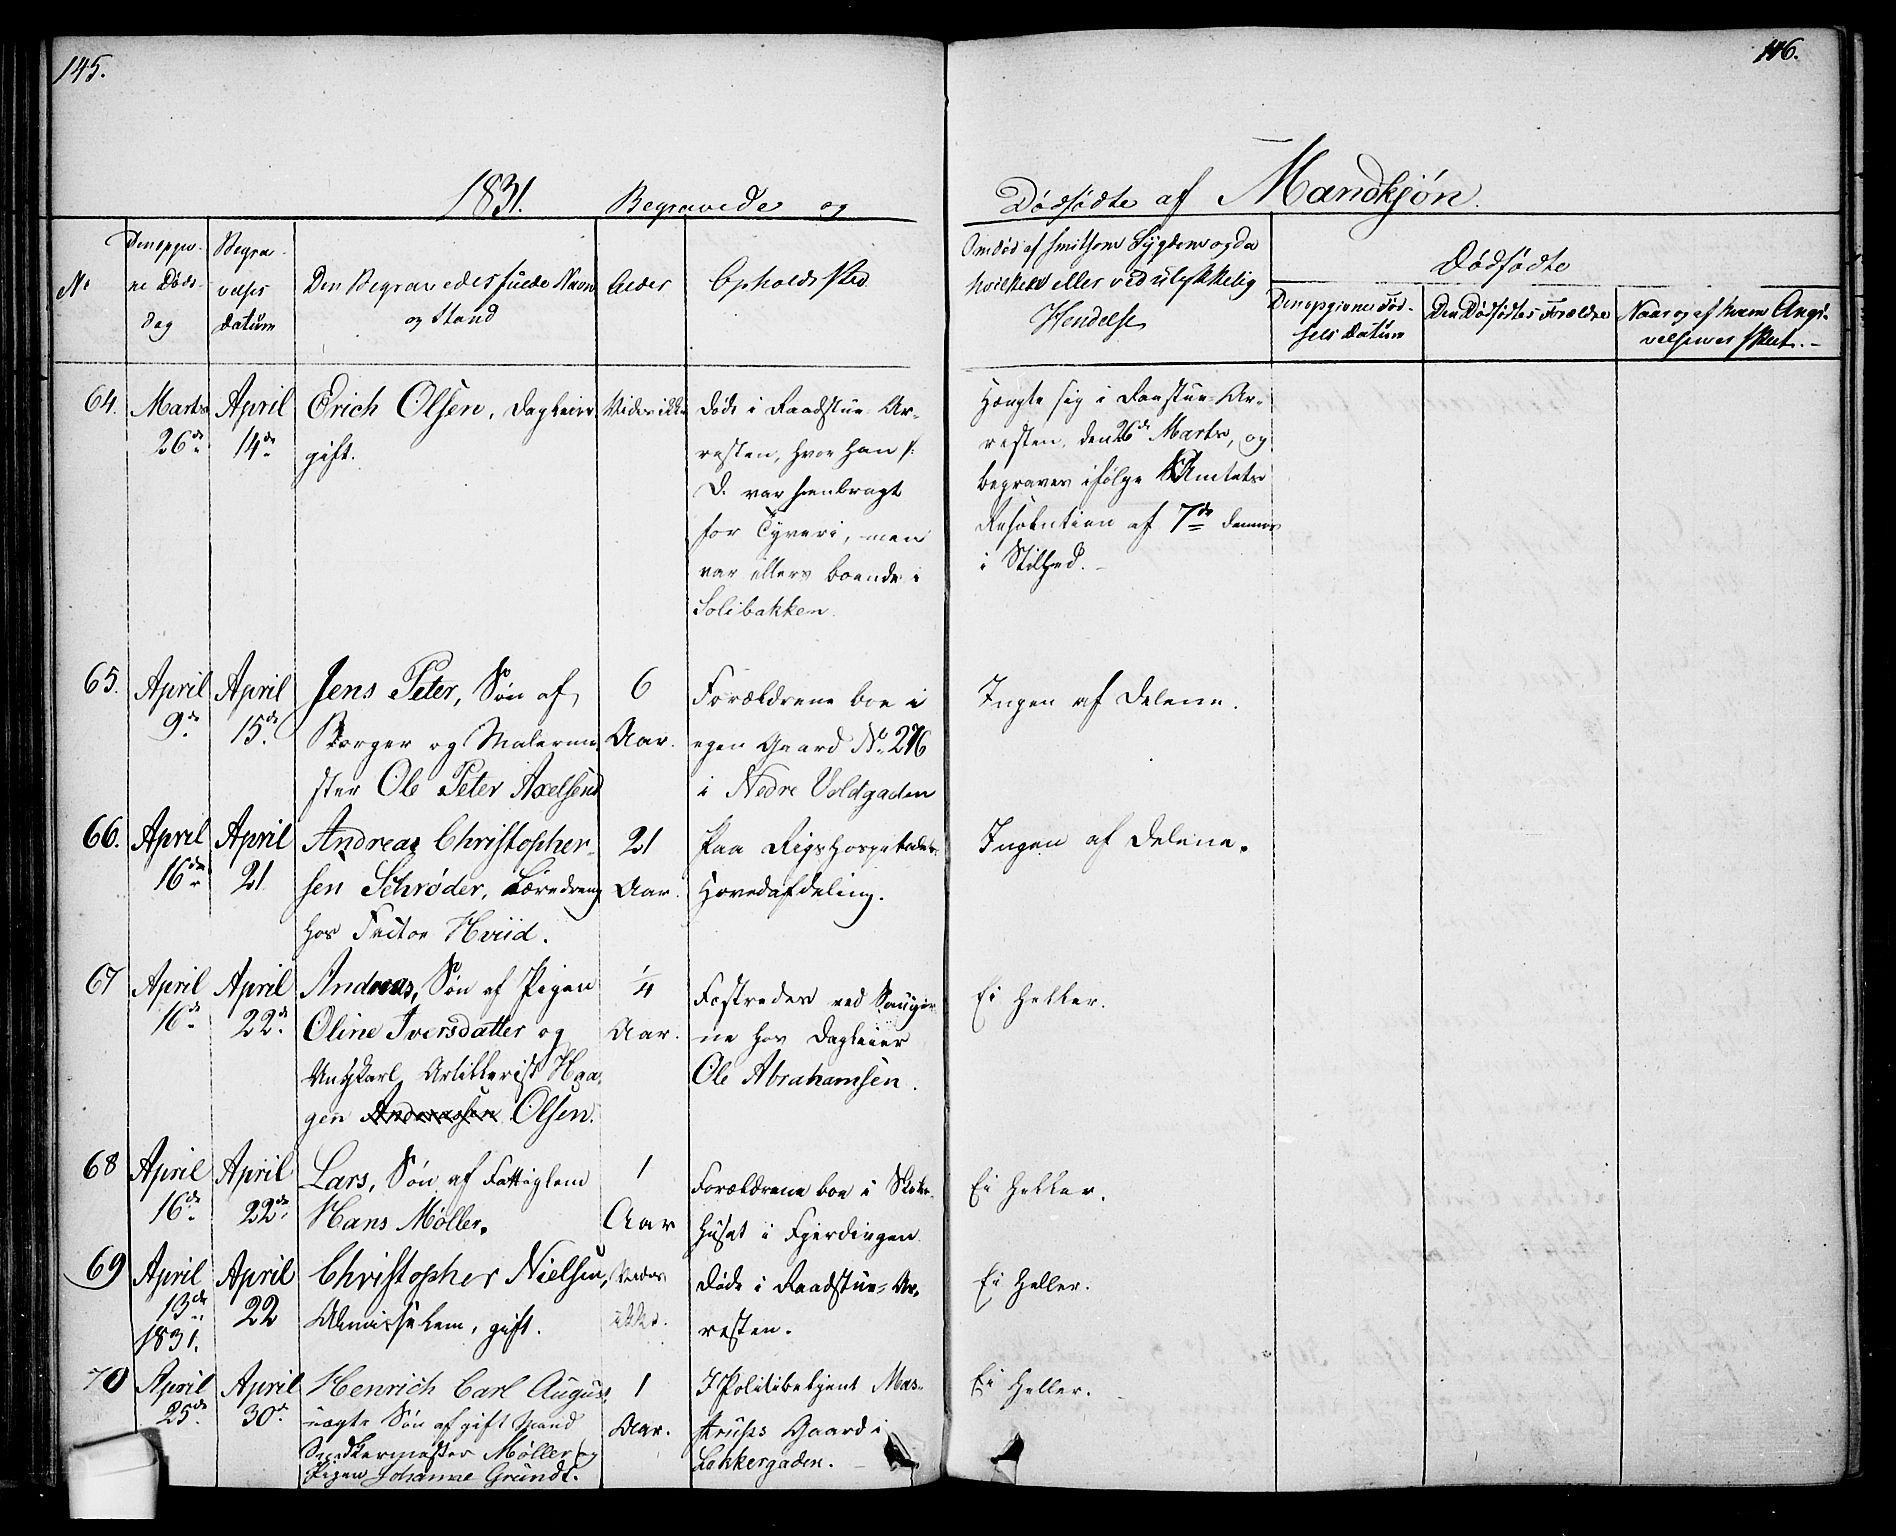 145.
146.
1831. Begravede og
Dødfødte af Mandkjøn.
No
Den opgiv-
ne Døds-
dag
Begra-
velses
Datum
Den Begravedes fulde Navn
og Stand
Alder
Opholds Sted
Om død af smitsom Sygdom og da
hvilken eller ved ulykkelig
Hendelse
Dødfødte
Den opgivne Fød-
sels Datum
Den Dødfødtes Forældre
Naar og af hvem Angi-
velsen er skeet.
64.
Marts
26de
April
14de
Erich Olsen, Dagleier
gift.
Vides ikke
døde i Raadstue-Ar-
resten, hvor han p:
D. var henbragt
for Tyveri, men
var ellers boende i
Solibakken.
Hængte sig i Raastue-Ar-
resten, den 26de Marts, og
begraves ifølge Amtets
Resolution af 7de dennes
i Stilhed.
65.
April
9de
April
15de
Jens Peter, Søn af
Borger og Malerme-
ster Ole Peter Axelsen
6
Aar.
Forældrene boe i
egen Gaard No 276
i Nedre Voldgaden
Ingen af Delene.
66.
April
16de
April
21
Andreas Christopher-
sen Schrøder, Læredreng
hos Factor Hviid.
21
Aar.
Paa Rigshospitalets
Hovedafdeling.
Ingen af Delene.
67
April
16de
April
22de
Andreas, Søn af Pigen
Oline Iversdatter og
Ungkarl Artillerist Haa-
gen Andreassen Olsen.
1/4
Aar.
Fostredes ved Saugør-
ne hos Dagleier
Ole Abrahamsen.
Ei heller.
68
April
16de
April
22de
Lars, Søn af Fattiglem
Hans Møller.
1
Aar
Forældrene boe i
huset i Fjerdingen
Ei heller.
69
April
13de
1831.
April
22
Christopher Nielsen,
Almisselem, gift.
Vides
ikke.
døde i Raadstue-Ar-
resten.
Ei heller.
70
April
25de
April
30de
Henrich Carl August
uægte Søn af gift Mand
Snedkermester Møller og
Pigen Johanne Grundt.
1
Aar.
I Politibetjent Mas-
trups Gaard i
Lakkergaden.
Ei heller.